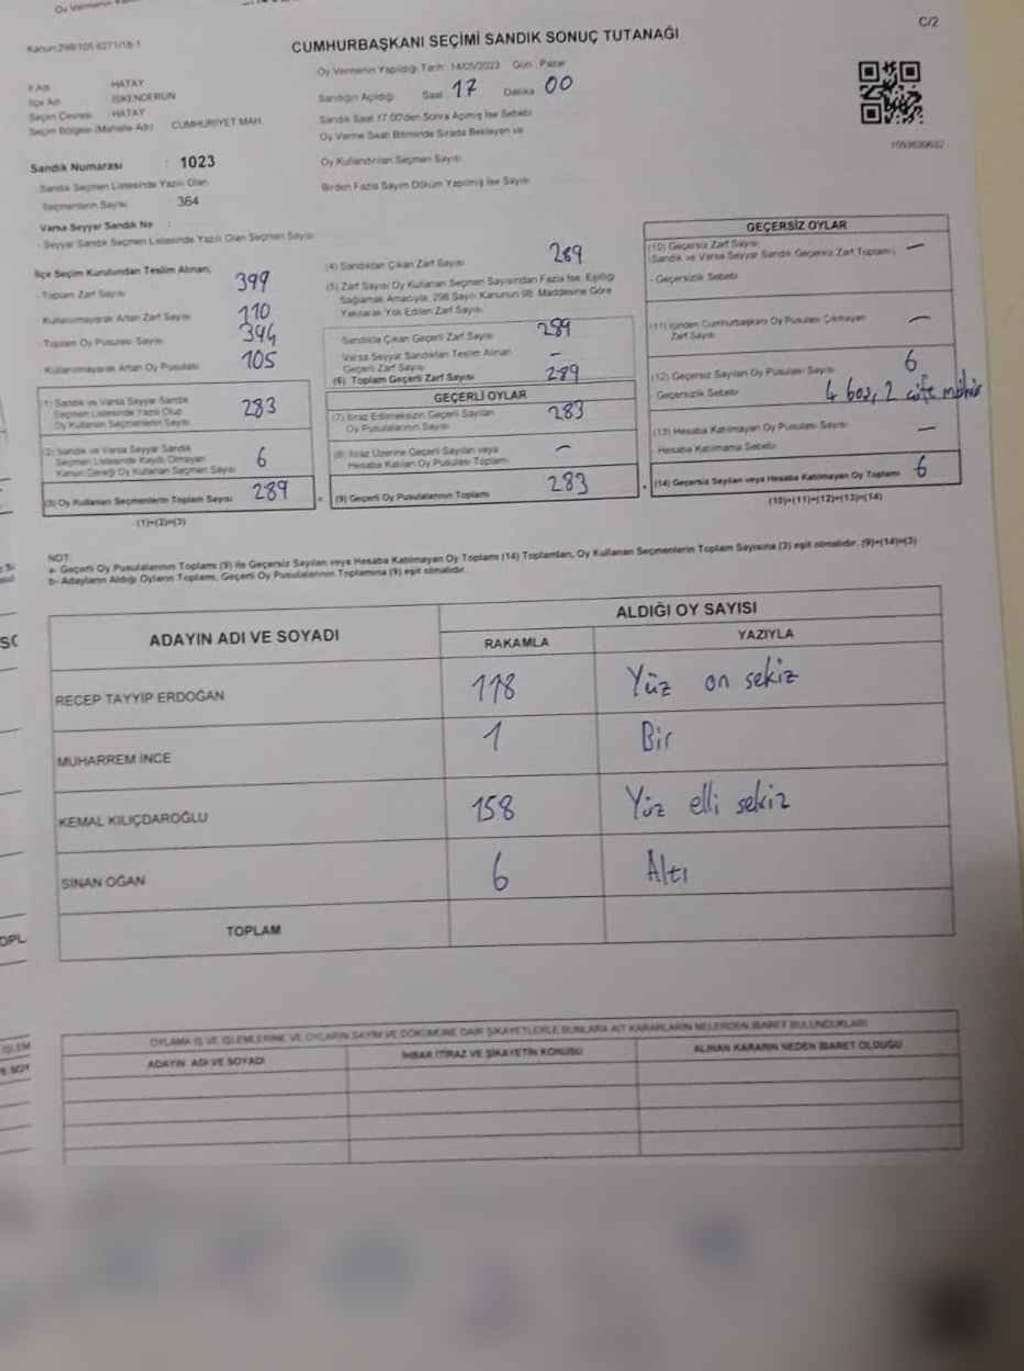 C/2
CUMHURBAŞKANI SEÇİMİ SANDIK SONUÇ TUTANAĞI
Oy Vermenin Yapıldığı Tarih: 14/05/2023 Gün: Pazar
Sandığın Açıldığı Saat 17 Dakika 00
Sandık Saat 17:00'den Sonra Açımış İse Sebebi
Oy Verme Saati Bitiminde Sırada Bekleyen ve
Oy Kullandırılan Seçmen Sayısı
Birden Fazla Sayım Döküm Yapılmış İse Sayısı
İl Adı HATAY
İlçe Adı İSKENDERUN
Seçim Çevresi HATAY
Seçim Bölgesi (Mahalle Adı) CUMHURİYET MAH.
Sandık Numarası : 1023
- Sandık Seçmen Listesinde Yazılı Olan
Seçmenlerin Sayısı 364
Varsa Seyyar Sandık No :
- Seyyar Sandık Seçmen Listesinde Yazılı Olan Seçmen Sayısı
İlçe Seçim Kurulundan Teslim Alınan;
- Toplam Zarf Sayısı 399
- Kullanılmayarak Artan Zarf Sayısı 110
- Toplam Oy Pusulası Sayısı 394
Kullanılmayarak Artan Oy Pusulası 105
(1) Sandık ve Varsa Seyyar Sandık
Seçmen Listesinde Yazılı Olup
Oy Kullanan Seçmenlerin Sayısı 283
(2) Sandık ve Varsa Seyyar Sandık
Seçmen Listesinde Kayıtlı Olmayan
Kanun Gereği Oy Kullanan Seçmen Sayısı 6
(3) Oy Kullanan Seçmenlerin Toplam Sayısı 289
(1)+(2)=(3)
(4) Sandıktan Çıkan Zarf Sayısı 289
(5) Zarf Sayısı Oy Kullanan Seçmen Sayısından Fazla İse, Eşitliği
Sağlamak Amacıyla, 298 Sayılı Kanunun 98. Maddesine Göre
Yakılarak Yok Edilen Zarf Sayısı
Sandıkta Çıkan Geçerli Zarf Sayısı 289
Varsa Seyyar Sandıktan Teslim Alınan
Geçerli Zarf Sayısı -
(6) Toplam Geçerli Zarf Sayısı 289
GEÇERLİ OYLAR
(7) İtiraz Edilmeksizin Geçerli Sayılan
Oy Pusulalarının Sayısı 283
(8) İtiraz Üzerine Geçerli Sayılan veya
Hesaba Katılan Oy Pusulası Toplamı -
(9) Geçerli Oy Pusulalarının Toplamı 283
GEÇERSİZ OYLAR
(10) Geçersiz Zarf Sayısı
(Sandık ve Varsa Seyyar Sandık Geçersiz Zarf Toplamı) -
- Geçersizlik Sebebi
(11) İçinden Cumhurbaşkanı Oy Pusulası Çıkmayan
Zarf Sayısı -
(12) Geçersiz Sayılan Oy Pusulası Sayısı 6
Geçersizlik Sebebi 4 boş, 2 çift mühür
(13) Hesaba Katılmayan Oy Pusulası Sayısı -
Hesaba Katılmama Sebebi
(14) Geçersiz Sayılan veya Hesaba Katılmayan Oy Toplamı 6
(10)+(11)+(12)+(13)=(14)
NOT:
a- Geçerli Oy Pusulalarının Toplamı (9) ile Geçersiz Sayılan veya Hesaba Katılmayan Oy Toplamı (14) Toplamları, Oy Kullanan Seçmenlerin Toplam Sayısına (3) eşit olmalıdır. (9)+(14)=(3)
b- Adayların Aldığı Oyların Toplamı, Geçerli Oy Pusulalarının Toplamına (9) eşit olmalıdır.
ADAYIN ADI VE SOYADI
ALDIĞI OY SAYISI
RAKAMLA YAZIYLA
RECEP TAYYİP ERDOĞAN 118 Yüz on sekiz
MUHARREM İNCE 1 Bir
KEMAL KILIÇDAROĞLU 158 Yüz elli sekiz
SİNAN OĞAN 6 Altı
TOPLAM
OYLAMA İŞ VE İŞLEMLERİNE VE OYLARIN SAYIM VE DÖKÜMÜNE DAİR ŞİKAYETLERLE BUNLARA AİT KARARLARIN NELERDEN İBARET BULUNDUKLARI
ADAYIN ADI VE SOYADI İHBAR İTİRAZ VE ŞİKAYETİN KONUSU ALINAN KARARIN NEDEN İBARET OLDUĞU